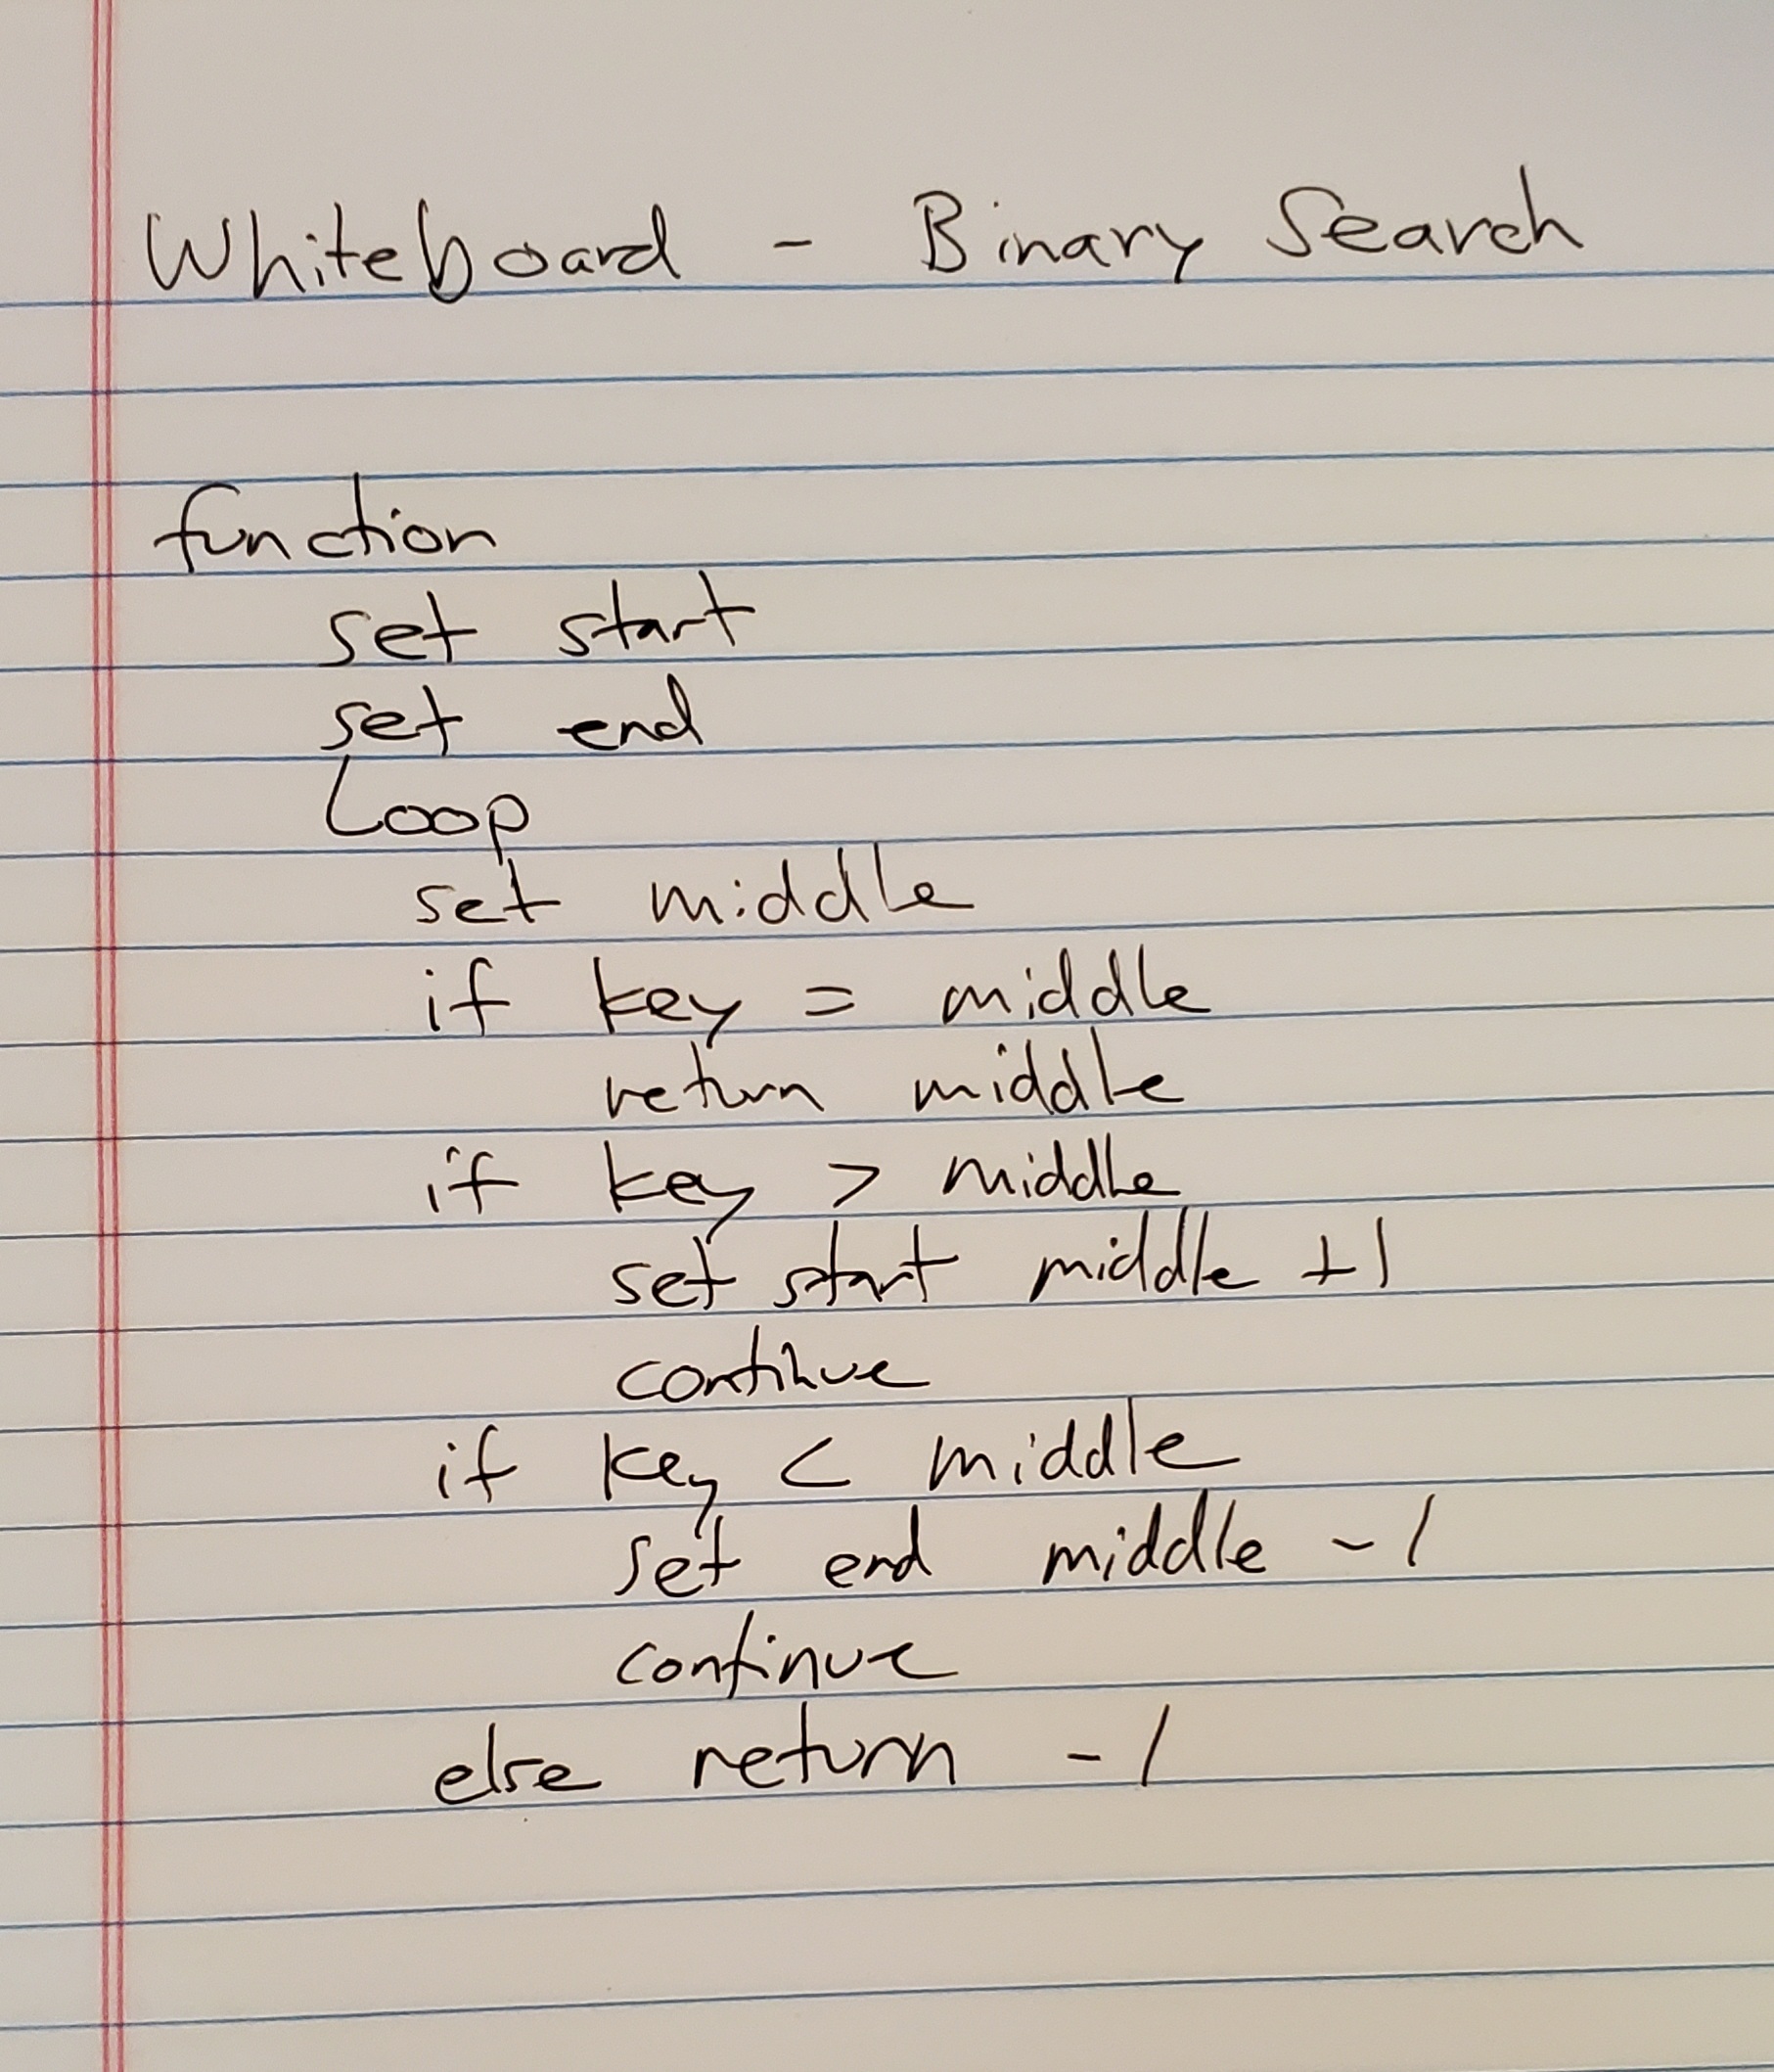 Whiteboard - Binary Search
function
set start
set end
Loop
set middle
if key = middle
return middle
if key > middle
set start middle +1
continue
if key < middle
set end middle -1
continue
else return -1